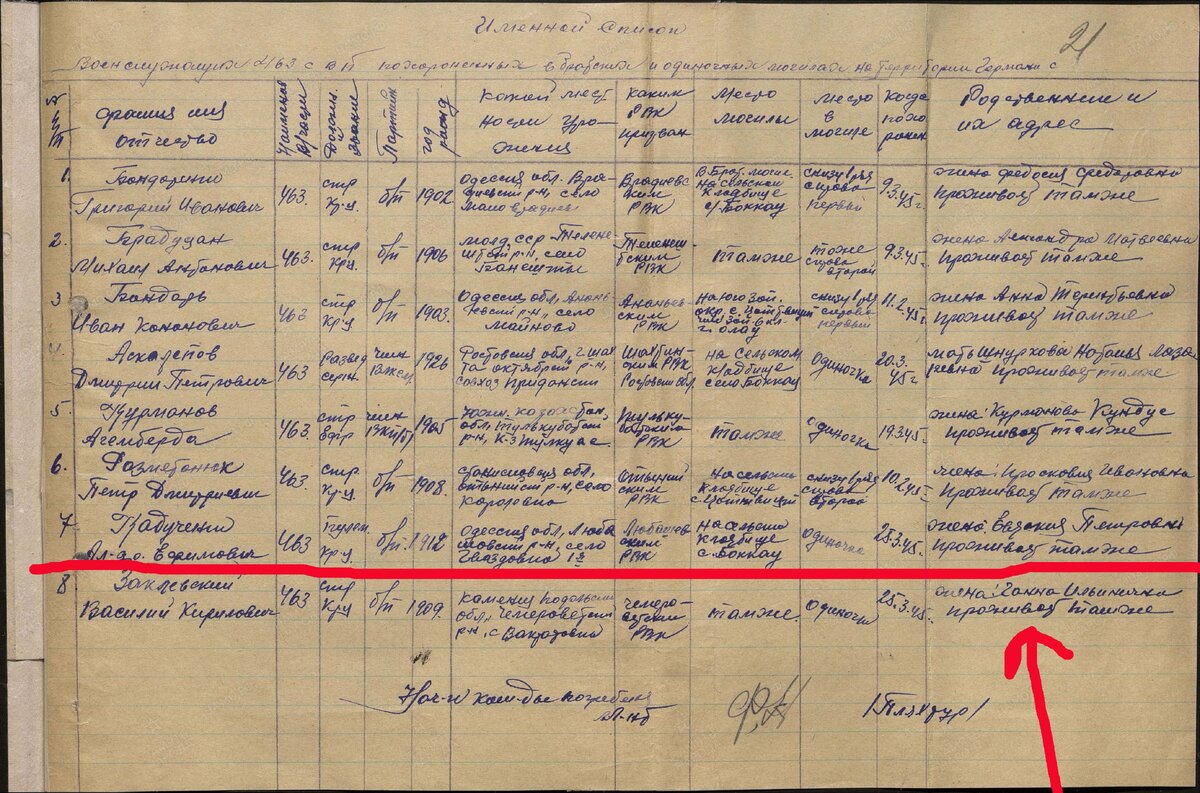 Именной список
21
Военслужащих 463 с ю п похороненных в братских и одиночных могилах на территории Германии с
№ фамилия имя отчество Наименов. в/части Должн. звание Партийн год рожд. какой местности урожения каким РВК призван Место могилы место в могиле когда похоронен Родственники и их адрес
1. Бондаренко Григорий Иванович 463. стр кр-ц б/п 1902 Одесская обл. Врадиевский р-н, село Врадиевским РВК В брат. могиле на сельском кладбище с/Боккау снизу 1 ряд справа первый 9.3.45 г жена Федосия Федоровна проживает там же
2. Брабудан Михаил Антонович 463. стр кр-ц б/п 1906 молд. ССР р-н, село РВК там же тоже справа второй 9.3.45 г. жена Александра Матвеевна проживает там же
3 Бондарь Иван Кононович 463 стр кр-ц б/п 1903. Одесская обл, Ананьевский р-н, село Майново Ананьевским РВК на юго зап. окр. с. снизу 1 ряд справа первый 11.2.45 г. жена Анна Терентьевна проживает там же
4. Аскалепов Дмитрий Петрович 463 Развед серж. член ВЛКСМ 1926 Ростовская обл, г. Шахта октябрьск р-н, совхоз РВК Ростовск обл. на сельском кладбище село Боккау Одиночка 20.3.45 г мать Шнуркова Наталья проживает там же
5. Курманов Агенберда 463. стр член ВКП(б) 1905 Южн. казахстан. обл. р-н, к-з РВК там же одиночка 19.3.45 г. жена: Курманова Кундус проживает там же
6. Петр Дмитриевич 463. стр кр-ц б/п 1908. Станиславская обл, р-н, село РВК На сельском кладбище снизу 1 ряд справа второй 10.2.45 г жена: Просковия Ивановна проживает там же
7. Ал-др. Ефимович 463 пулем. кр-ц б/п. 1912 Одесская обл, Любашовский р-н, село Гвоздовка 1я Любашовский РВК на сельском кладбище с. Боккау одиночка 25.3.45. жена: Евдокия Петровна проживает там же
8. Заклевский Василий Кирилович 463 стр кр-ц б/п 1909. каменец подольская обл, Чемеровецкий р-н, с РВК там же. Одиночка 25.3.45. жена: Ганна Ильинична проживает там же
Нач-к команды погребения